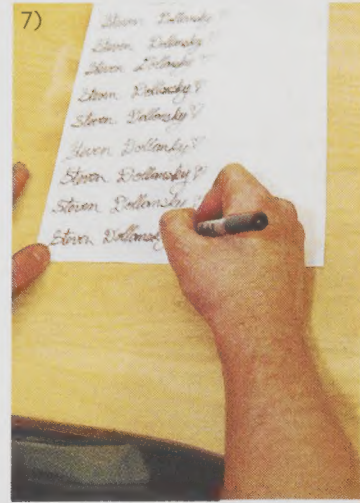 7)
Steven Dollansky ♡
Steven Dollansky ♡
Steven Dollansky ♡
Steven Dollansky ♡
Steven Dollansky ♡
Steven Dollansky ♡
Steven Dollansky ♡
Steven Dollansky
Steven Dollansky